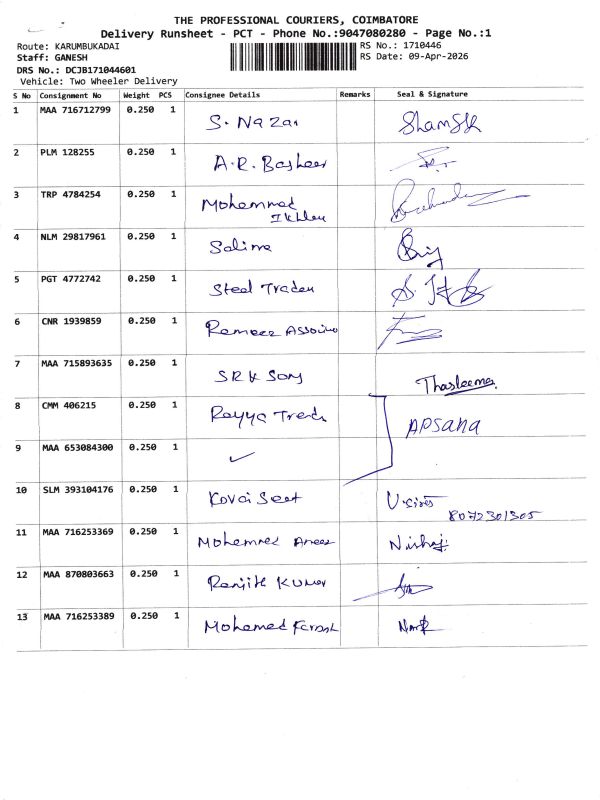 THE PROFESSIONAL COURIERS, COIMBATORE
Delivery Runsheet - PCT - Phone No.:9047080280 - Page No.:1
Route: KARUMBUKADAI
RS No.: 1710446
Staff: GANESH
RS Date: 09-Apr-2026
DRS No.: DCJB171044601
Vehicle: Two Wheeler Delivery
S No Consignment No Weight PCS Consignee Details Remarks Seal & Signature
1 MAA 716712799 0.250 1 S. Nazar
2 PLM 128255 0.250 1 A.R. Basheer
3 TRP 4784254 0.250 1 Mohammed
4 NLM 29817961 0.250 1 Salima
5 PGT 4772742 0.250 1 Steel Traders
6 CNR 1939859 0.250 1 Rameez
7 MAA 715893635 0.250 1 SRK Sons Thasleema
8 CMM 406215 0.250 1 Rayya Traders APSANA
9 MAA 653084300 0.250 1 ✓
10 SLM 393104176 0.250 1 Kovai Seat
8072301305
11 MAA 716253369 0.250 1 Mohammed Anees
12 MAA 870803663 0.250 1 Ranjith Kumar
13 MAA 716253389 0.250 1 Mohamed